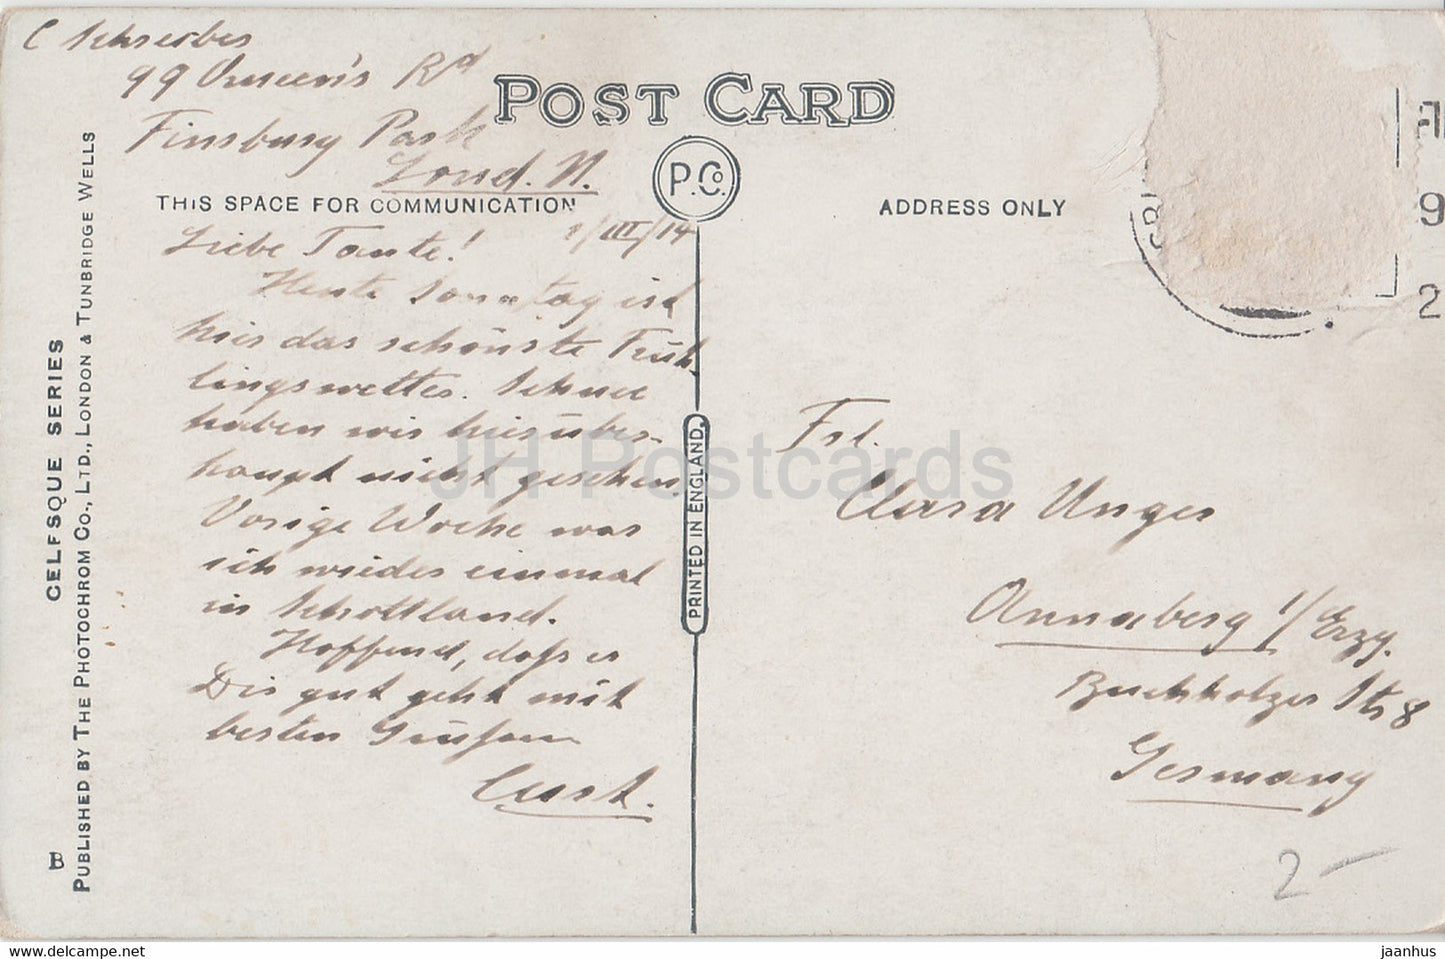 C Schreiber
99 Queen's Rd
Finsbury Park
Lond. N.
POST CARD
P. Co.
THIS SPACE FOR COMMUNICATION
ADDRESS ONLY
1/III/14
Liebe Tante!
Heute Sonntag ist
hier das schönste Früh-
lingswetter. Schnee
haben wir hier über-
haupt nicht gesehen.
Vorige Woche war
ich wieder einmal
in Schottland.
Hoffend, daß es
Dir gut geht mit
besten Grüßen
Curt.
Frl.
Clara Unger
Annaberg i/Erzg.
Buchholzer Str 8
Germany
2-
PRINTED IN ENGLAND.
CELESQUE SERIES
PUBLISHED BY THE PHOTOCHROM CO., LTD., LONDON & TUNBRIDGE WELLS
B
9
2
JH Postcards
https://www.delcampe.net
jaanhus